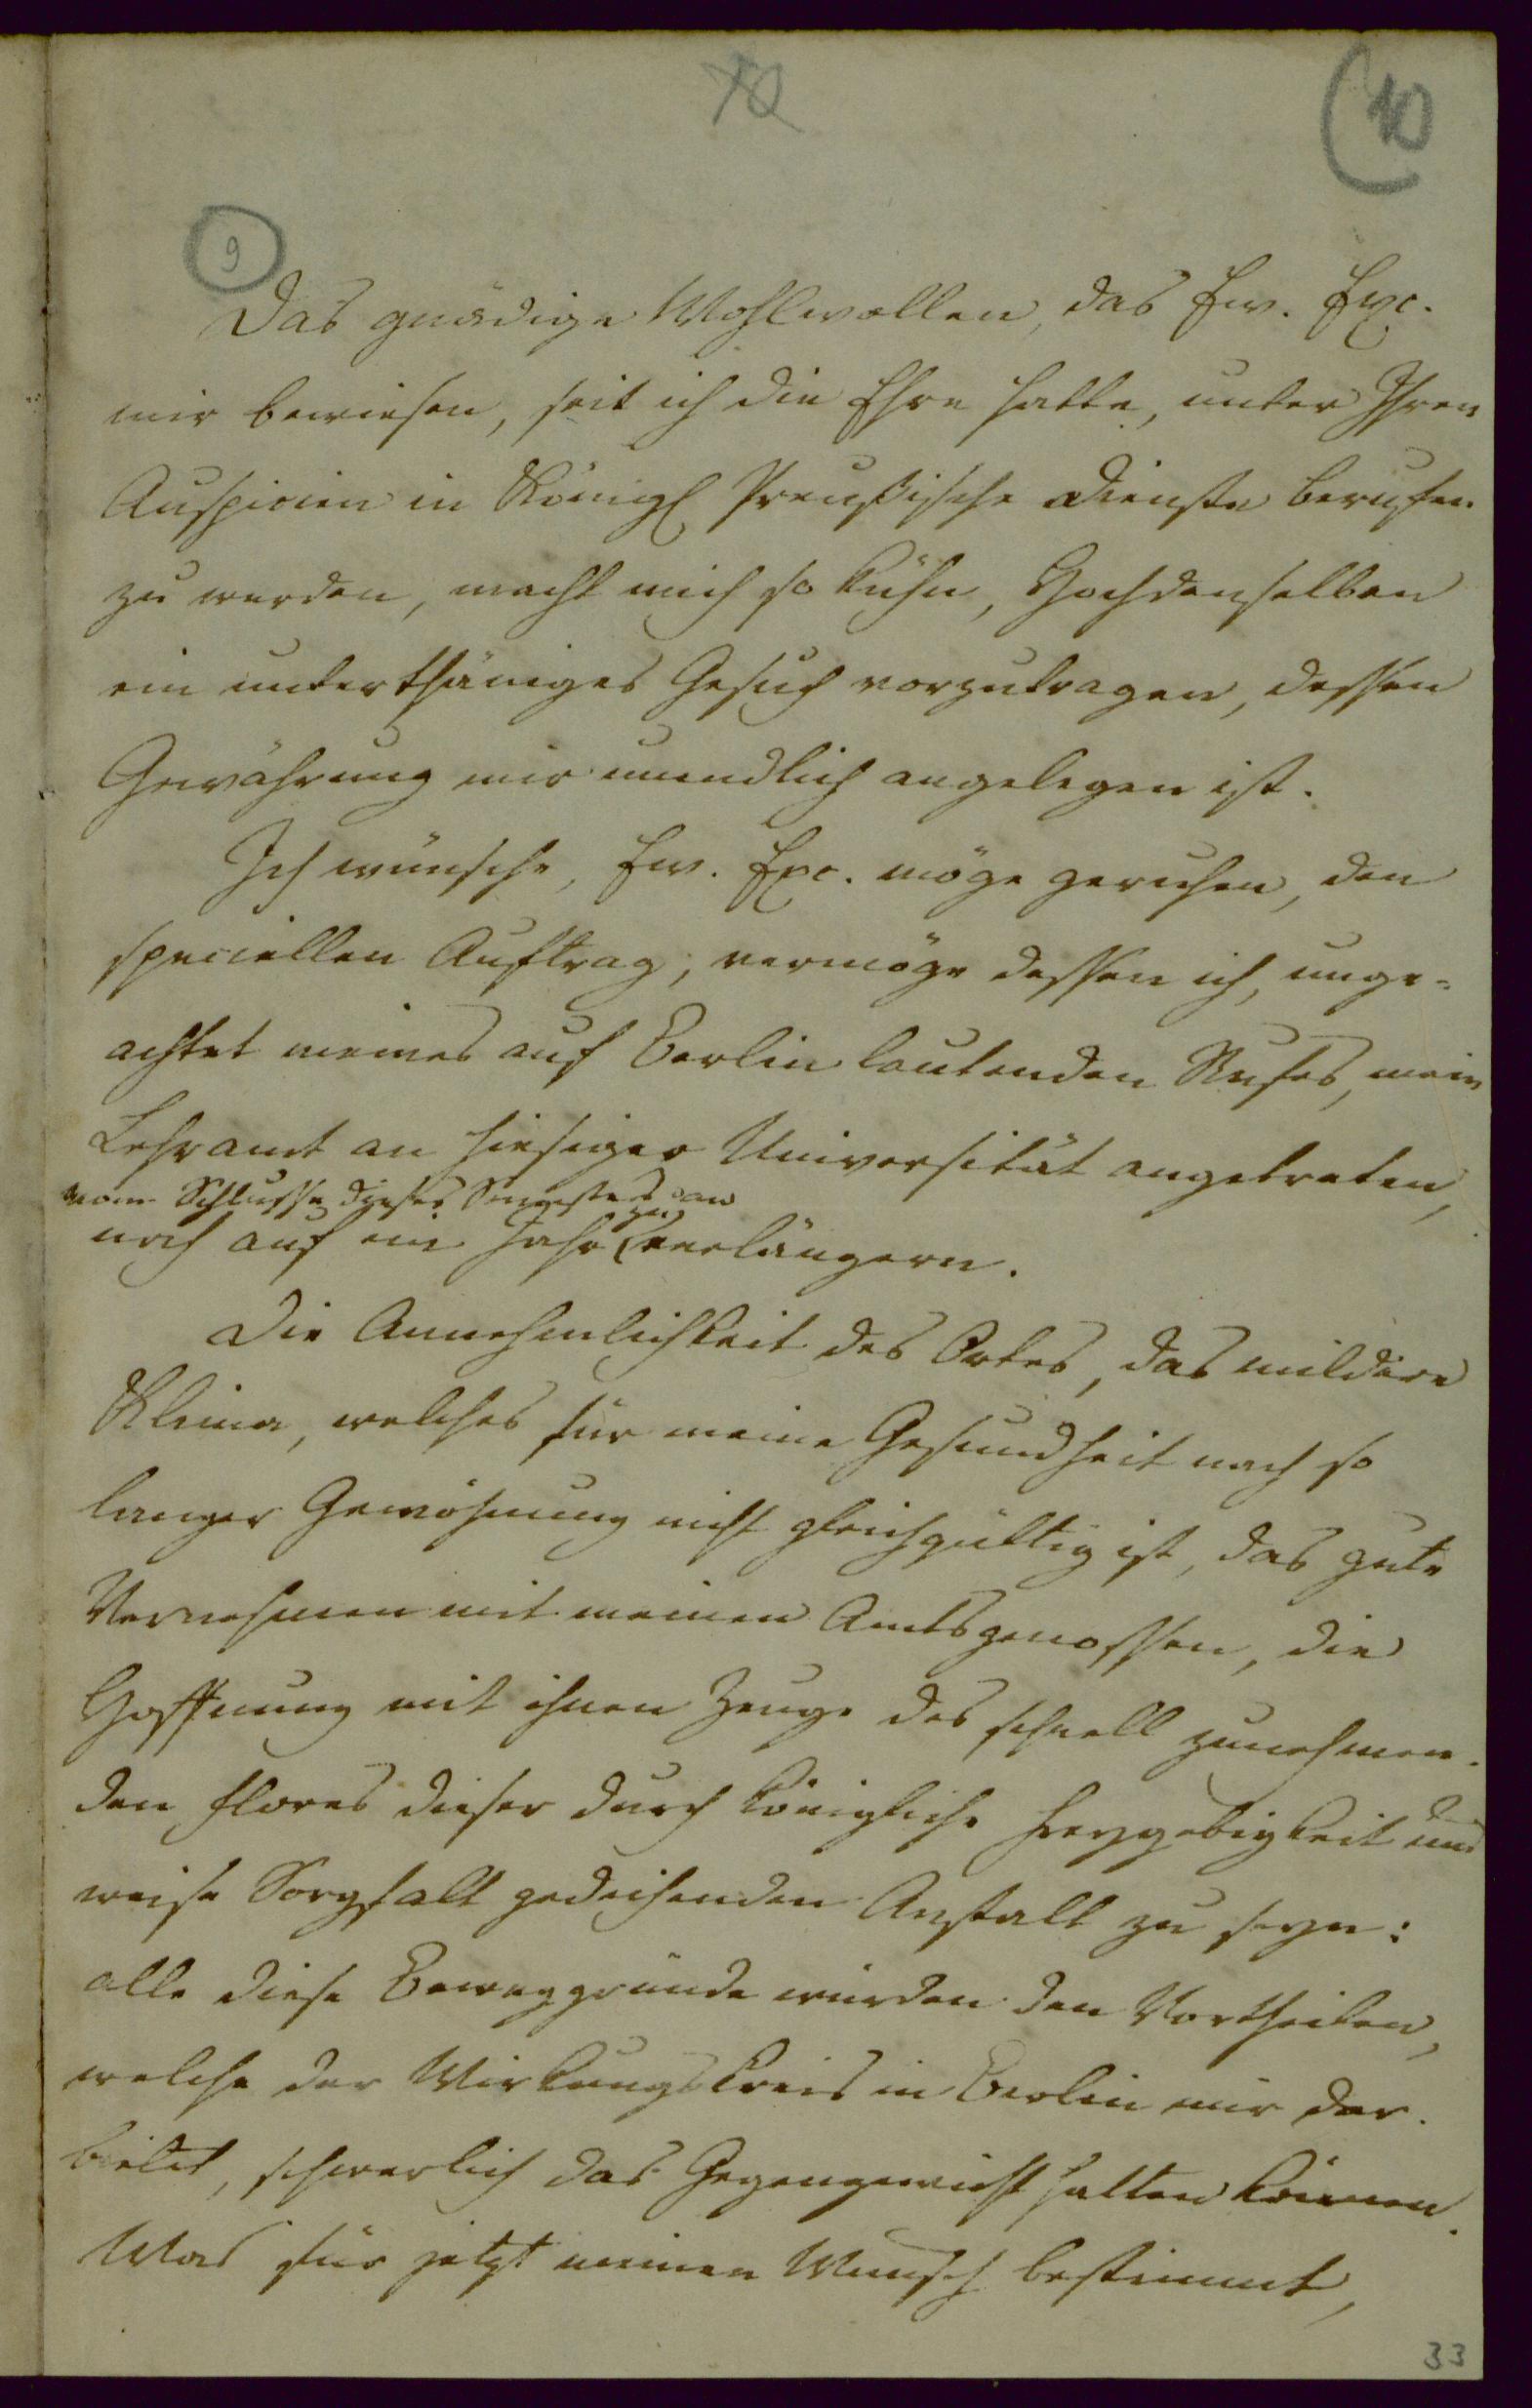 10
9
Das gnädige Wohlwollen, das Ew. Exc.
mir bewiesen, seit ich die Ehre hatte, unter Ihren
Auspicien in Königl Preußische Dienste berufen
zu werden, macht mich so kühn, Hochdenselben
ein unterthäniges Gesuch vorzutragen, dessen
Gewährung mir unendlich angelegen ist.
Ich wünsche, Ew. Exc. möge geruhen, den
speciellen Auftrag, vermöge dessen ich, unge-
achtet meines auf Berlin lautenden Rufes, mein
Lehramt an hiesiger Universität angetreten,
vom Schlusse dieses Semesters an
noch auf ein Jahr zu verlängern.
Die Annehmlichkeit des Ortes, das mildere
Klima, welches für meine Gesundheit nach so
langer Gewöhnung nicht gleichgültig ist, das gute
Vernehmen mit meinen Amtsgenossen, die
Hoffnung mit ihnen Zeuge des schnell zunehmen-
den Flores dieser durch königliche Freygebigkeit und
weise Sorgfalt gedeihenden Anstalt zu seyn:
alle diese Beweggründe würden den Vortheilen,
welche der Wirkungskreis in Berlin mir dar-
bietet, schwerlich das Gegengewicht halten können.
Was für jetzt meinen Wunsch bestimmt,
33